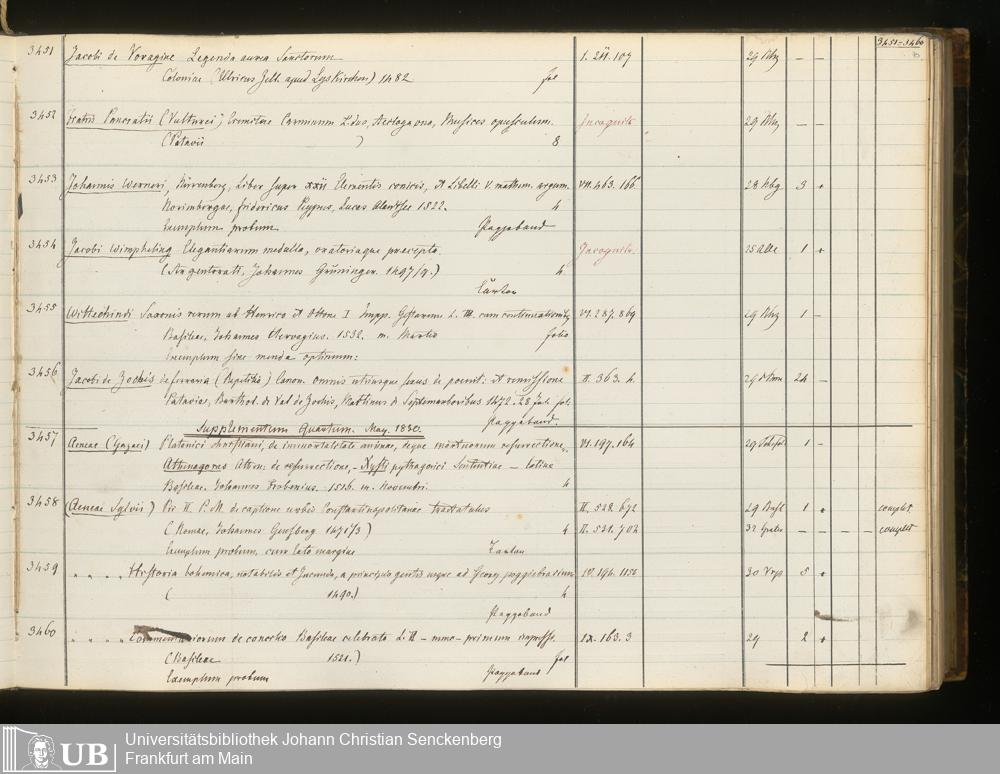 3451-3460
3451 Jacobi de Voragine Legenda aurea Sanctorum I. 211.107 29 — —
Coloniae (Ulricus Zell. apud LysKirchen) 1482 fol
3452 Pancratii (Vulturei) Carminum L. duo, Musices opusculum. Incognito 29 — —
(Patavii ) 8
3453 Johannis Werneri, Nürrenberg, Liber super xxii Elementis conicis, et Libelli V. mathem. argum. VII. 463. 166 28 3 +
Norimbergae, fridericus Peypus, Lucas Alantsee 1522. 4
Exemplum probum Pappband
3454 Jacobi Wimpheling Elegantiarum medulla, oratoriaque praecepta. Incognito. 25 1 +
(Argentorati, Johannes Grüninger. 1497/9.) 4
3455 Wittechindi Saxonis rerum ab Henrico et Ottone I Impp. Gestarum L. III. cum continuationib. VI. 287. 869 29 1 —
Basileae, Johannes Hervagius. 1532. m. Martio folio
Exemplum sine menda optimum:
3456 Jacobi de Zochis de ferraria (Repetitio) Canon. omnis utriusque sexus de poenit: et remissione II. 363. 4. 29 24 —
Pataviae, Barthol. de Val de Zochis, Martinus de Septemarboribus 1472. 28. Jul. fol.
Pappband.
Supplementum Quartum. May. 1830.
3457 Aeneae (Gazaei) Platonici christiani, de immortalitate animae, deque mortuorum resurrectione, VI. 197. 164 29 1 —
Athenagoras Athen: de resurrectione, — Xysti pythagorici Sententiae — latine
Basileae. Johannes Frobenius. 1516. m. Novembri. 4
3458 (Aeneae Sylvii) Pii II. P. M. de captione urbis Constantinopolitanae tractatulus II. 528. 672 29 1 + complet
(Romae, Johannes Gensberg 1471/3) 4 II. 531. 702 32 — — — — complet
Exemplum probum, cum lato margine
3459 " " " " Historia bohemica, notabilis et jucunda, a principio gentis usque ad Georg. poggiebracium IV. 194. 1156 30 5 +
( 1490.) 4
Pappband
3460 " " " " Commentariorum de concilio Basileae celebrato L. II — nunc primum impressi. IX. 163. 3 29 2 +
(Basileae 1521.) fol
Exemplum probum Pappband
UB
Universitätsbibliothek Johann Christian Senckenberg
Frankfurt am Main